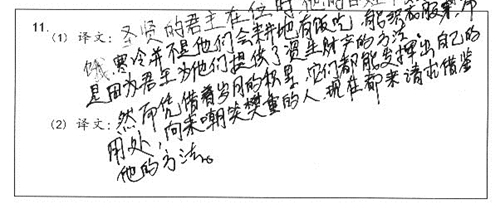 11.
(1) 译文：圣贤的君主在位时他的百姓不
饿寒冷并不是他们会耕地有饭吃，能织衣服穿，而
是因为君主为他们提供了资生财产的方法
(2) 译文：然而凭借着岁月的积累，它们都能发挥出自己的
用处，向来嘲笑樊重的人，现在都来请求借鉴
他的方法。